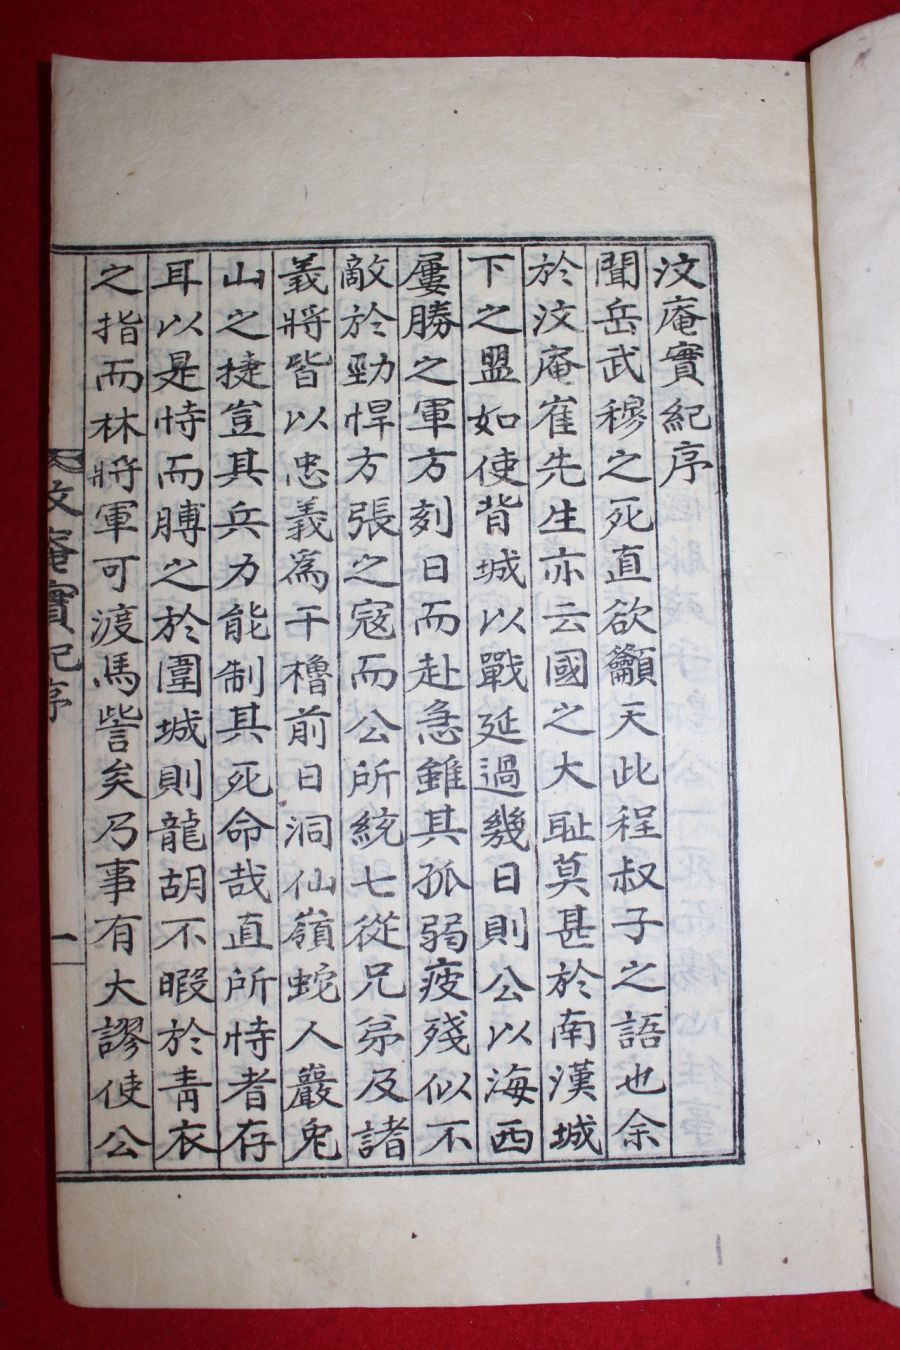 汶庵實紀序
聞岳武穆之死直欲籲天此程叔子之語也余
於汶庵崔先生亦云國之大耻莫甚於南漢城
下之盟如使背城以戰延過幾日則公以海西
屢勝之軍方刻日而赴急雖其孤弱疲殘似不
敵於勁悍方張之寇而公所統七從兄弟及諸
義將皆以忠義爲干櫓前日洞仙嶺蛇人巖兎
山之捷豈其兵力能制其死命哉直所恃者存
耳以是恃而膊之於圍城則龍胡不暇於靑衣
之指而林將軍可渡馬訾矣乃事有大謬使公
汶庵實紀序
一